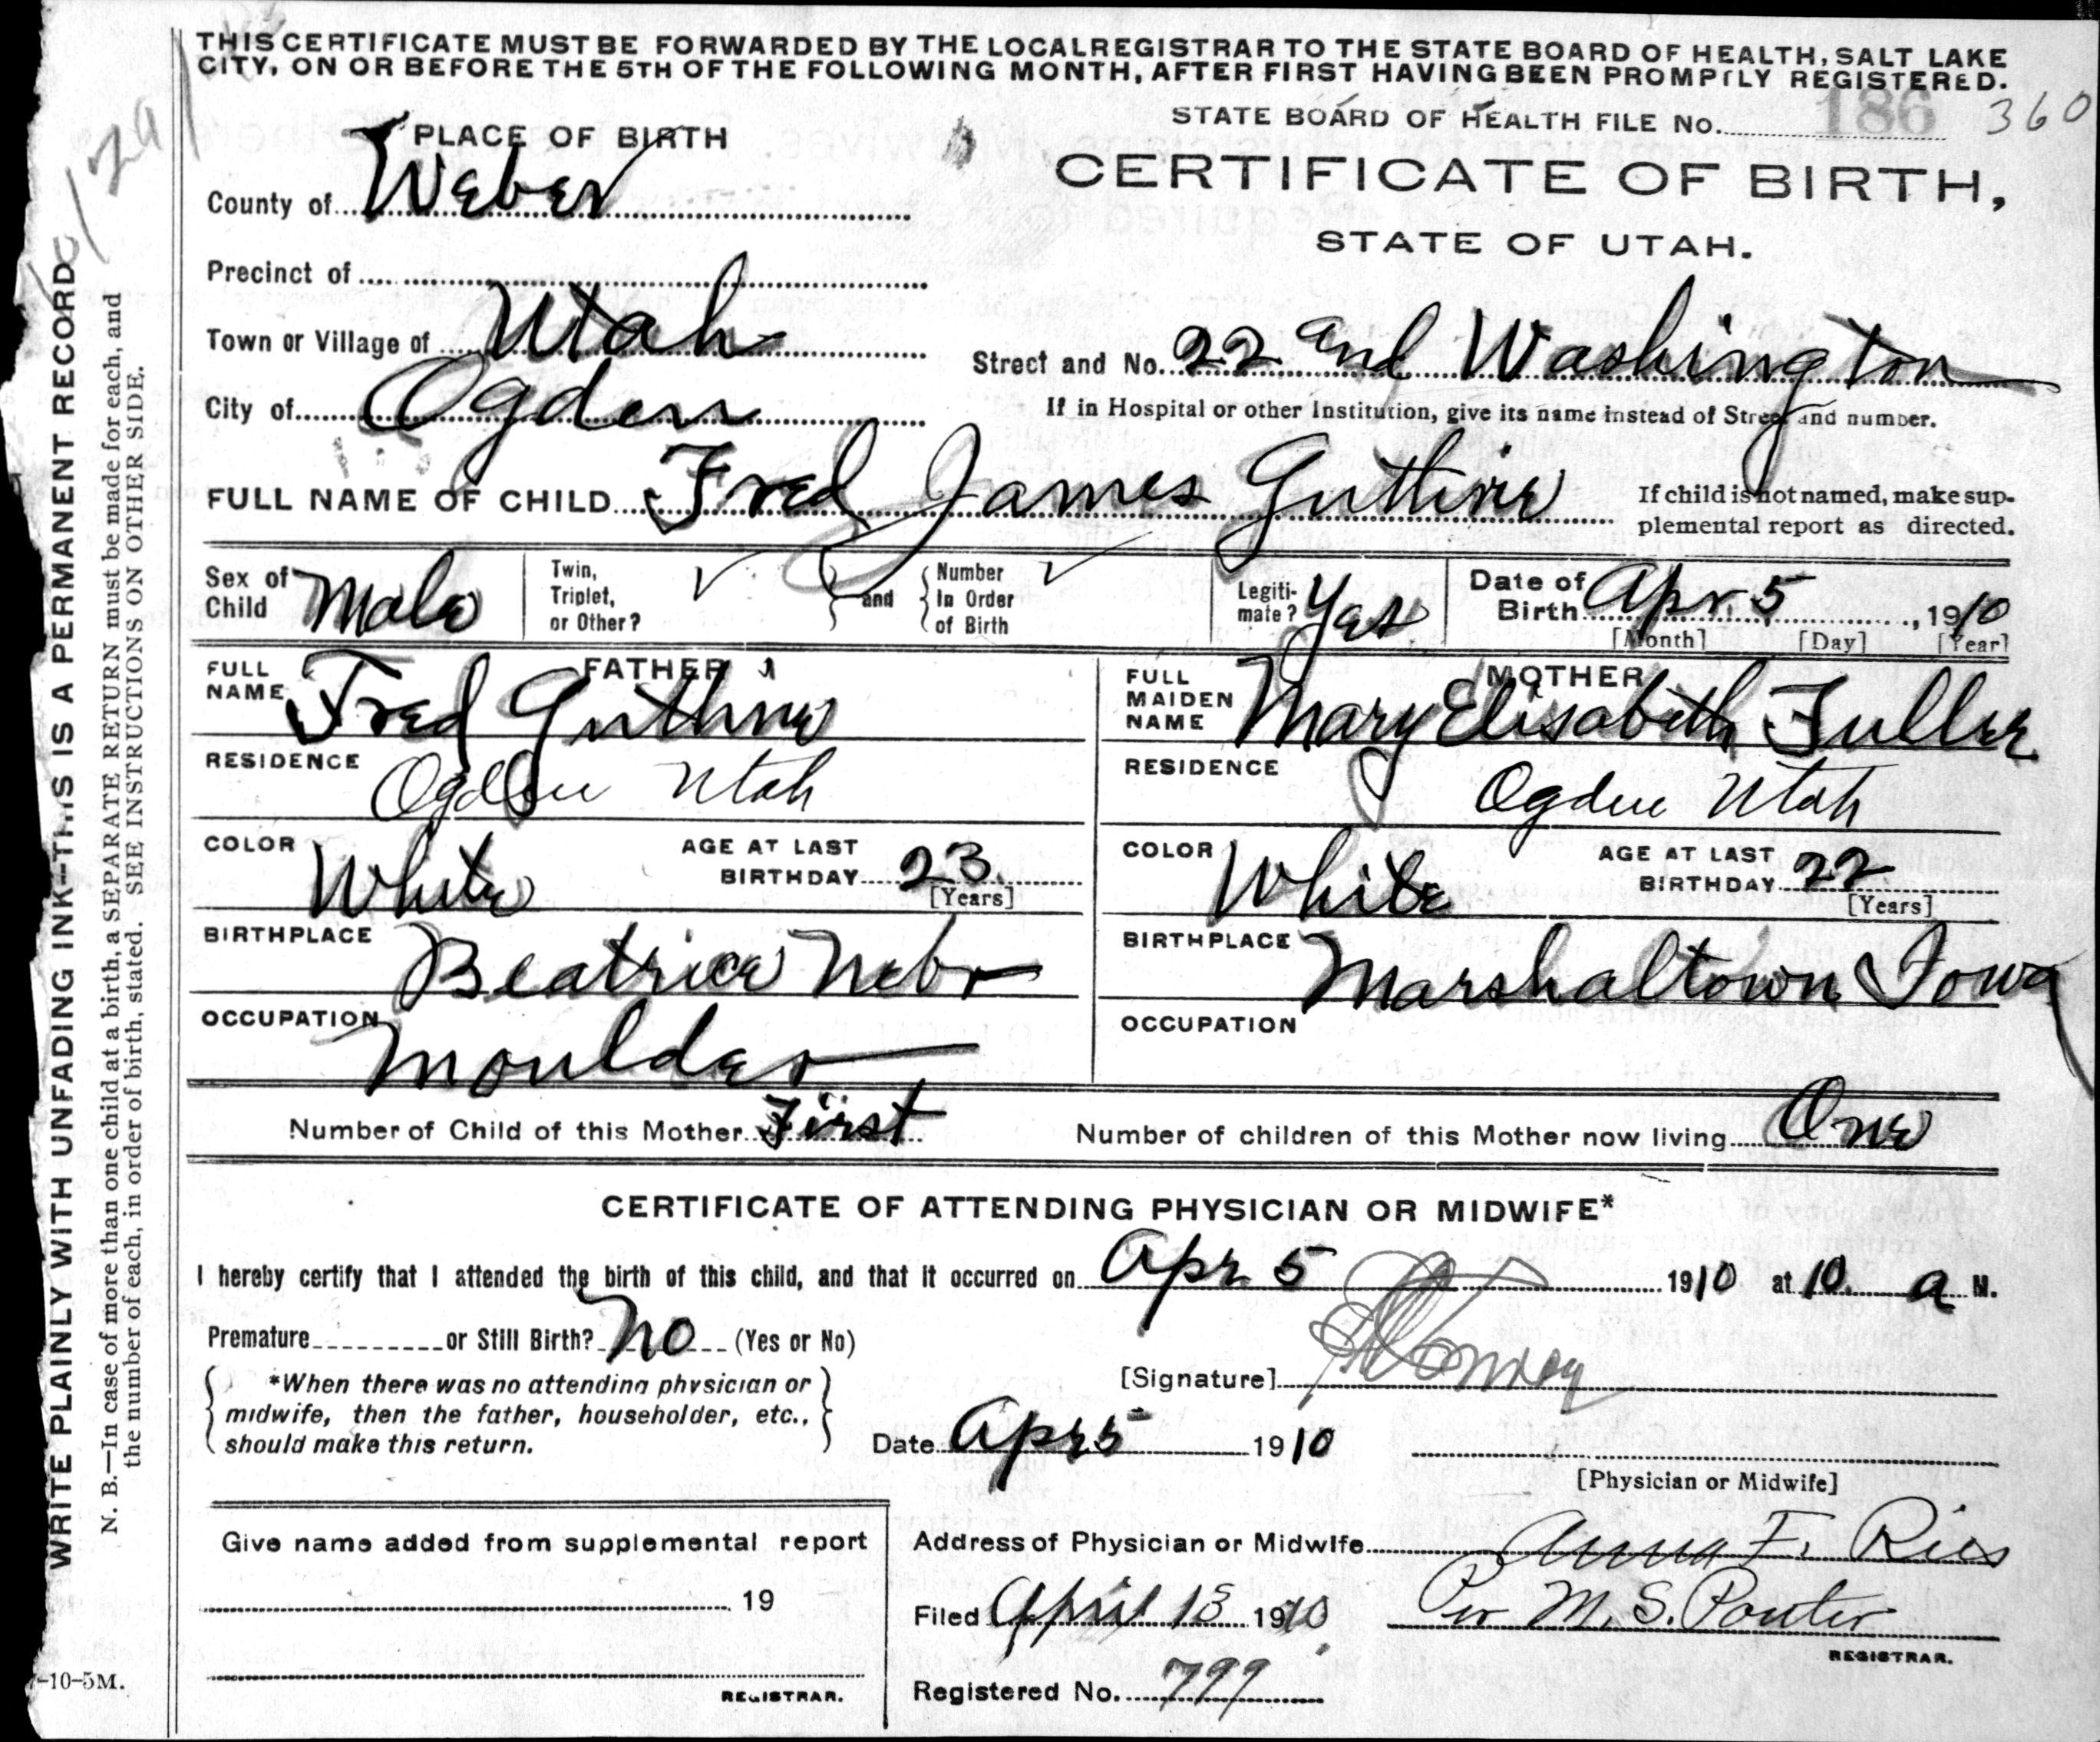 THIS CERTIFICATE MUST BE FORWARDED BY THE LOCAL REGISTRAR TO THE STATE BOARD OF HEALTH, SALT LAKE
CITY, ON OR BEFORE THE 5TH OF THE FOLLOWING MONTH, AFTER FIRST HAVING BEEN PROMPTLY REGISTERED.
STATE BOARD OF HEALTH FILE No. 186 360
PLACE OF BIRTH
CERTIFICATE OF BIRTH,
County of Weber
STATE OF UTAH.
Precinct of
Town or Village of Utah
Street and No. 22 and Washington
City of Ogden
If in Hospital or other Institution, give its name instead of Street and number.
FULL NAME OF CHILD Fred James Guthrie
If child is not named, make sup-
plemental report as directed.
Sex of Child Male
Twin, Triplet, or Other?
and
Number In Order of Birth
Legiti-mate? Yes
Date of Birth Apr 5, 1910
[Month] [Day] [Year]
FATHER
FULL NAME Fred Guthrie
MOTHER
FULL MAIDEN NAME Mary Elisabeth Fuller
RESIDENCE Ogden Utah
RESIDENCE Ogden Utah
COLOR White
AGE AT LAST BIRTHDAY 23 [Years]
COLOR White
AGE AT LAST BIRTHDAY 22 [Years]
BIRTHPLACE Beatrice Nebr
BIRTHPLACE Marshaltown Iowa
OCCUPATION Moulder
OCCUPATION
Number of Child of this Mother First
Number of children of this Mother now living One
CERTIFICATE OF ATTENDING PHYSICIAN OR MIDWIFE*
I hereby certify that I attended the birth of this child, and that it occurred on Apr 5 1910 at 10 a M.
Premature or Still Birth? No (Yes or No)
*When there was no attending physician or
midwife, then the father, householder, etc.,
should make this return.
[Signature]
Date Apr 5 1910
[Physician or Midwife]
Give name added from supplemental report
19
REGISTRAR.
Address of Physician or Midwife
Anna F. Ries
Filed April 13 1910
Per M. S. Porter
REGISTRAR.
Registered No. 799
WRITE PLAINLY WITH UNFADING INK—THIS IS A PERMANENT RECORD
N. B.—In case of more than one child at a birth, a SEPARATE RETURN must be made for each, and
the number of each, in order of birth, stated. SEE INSTRUCTIONS ON OTHER SIDE.
-10-5M.